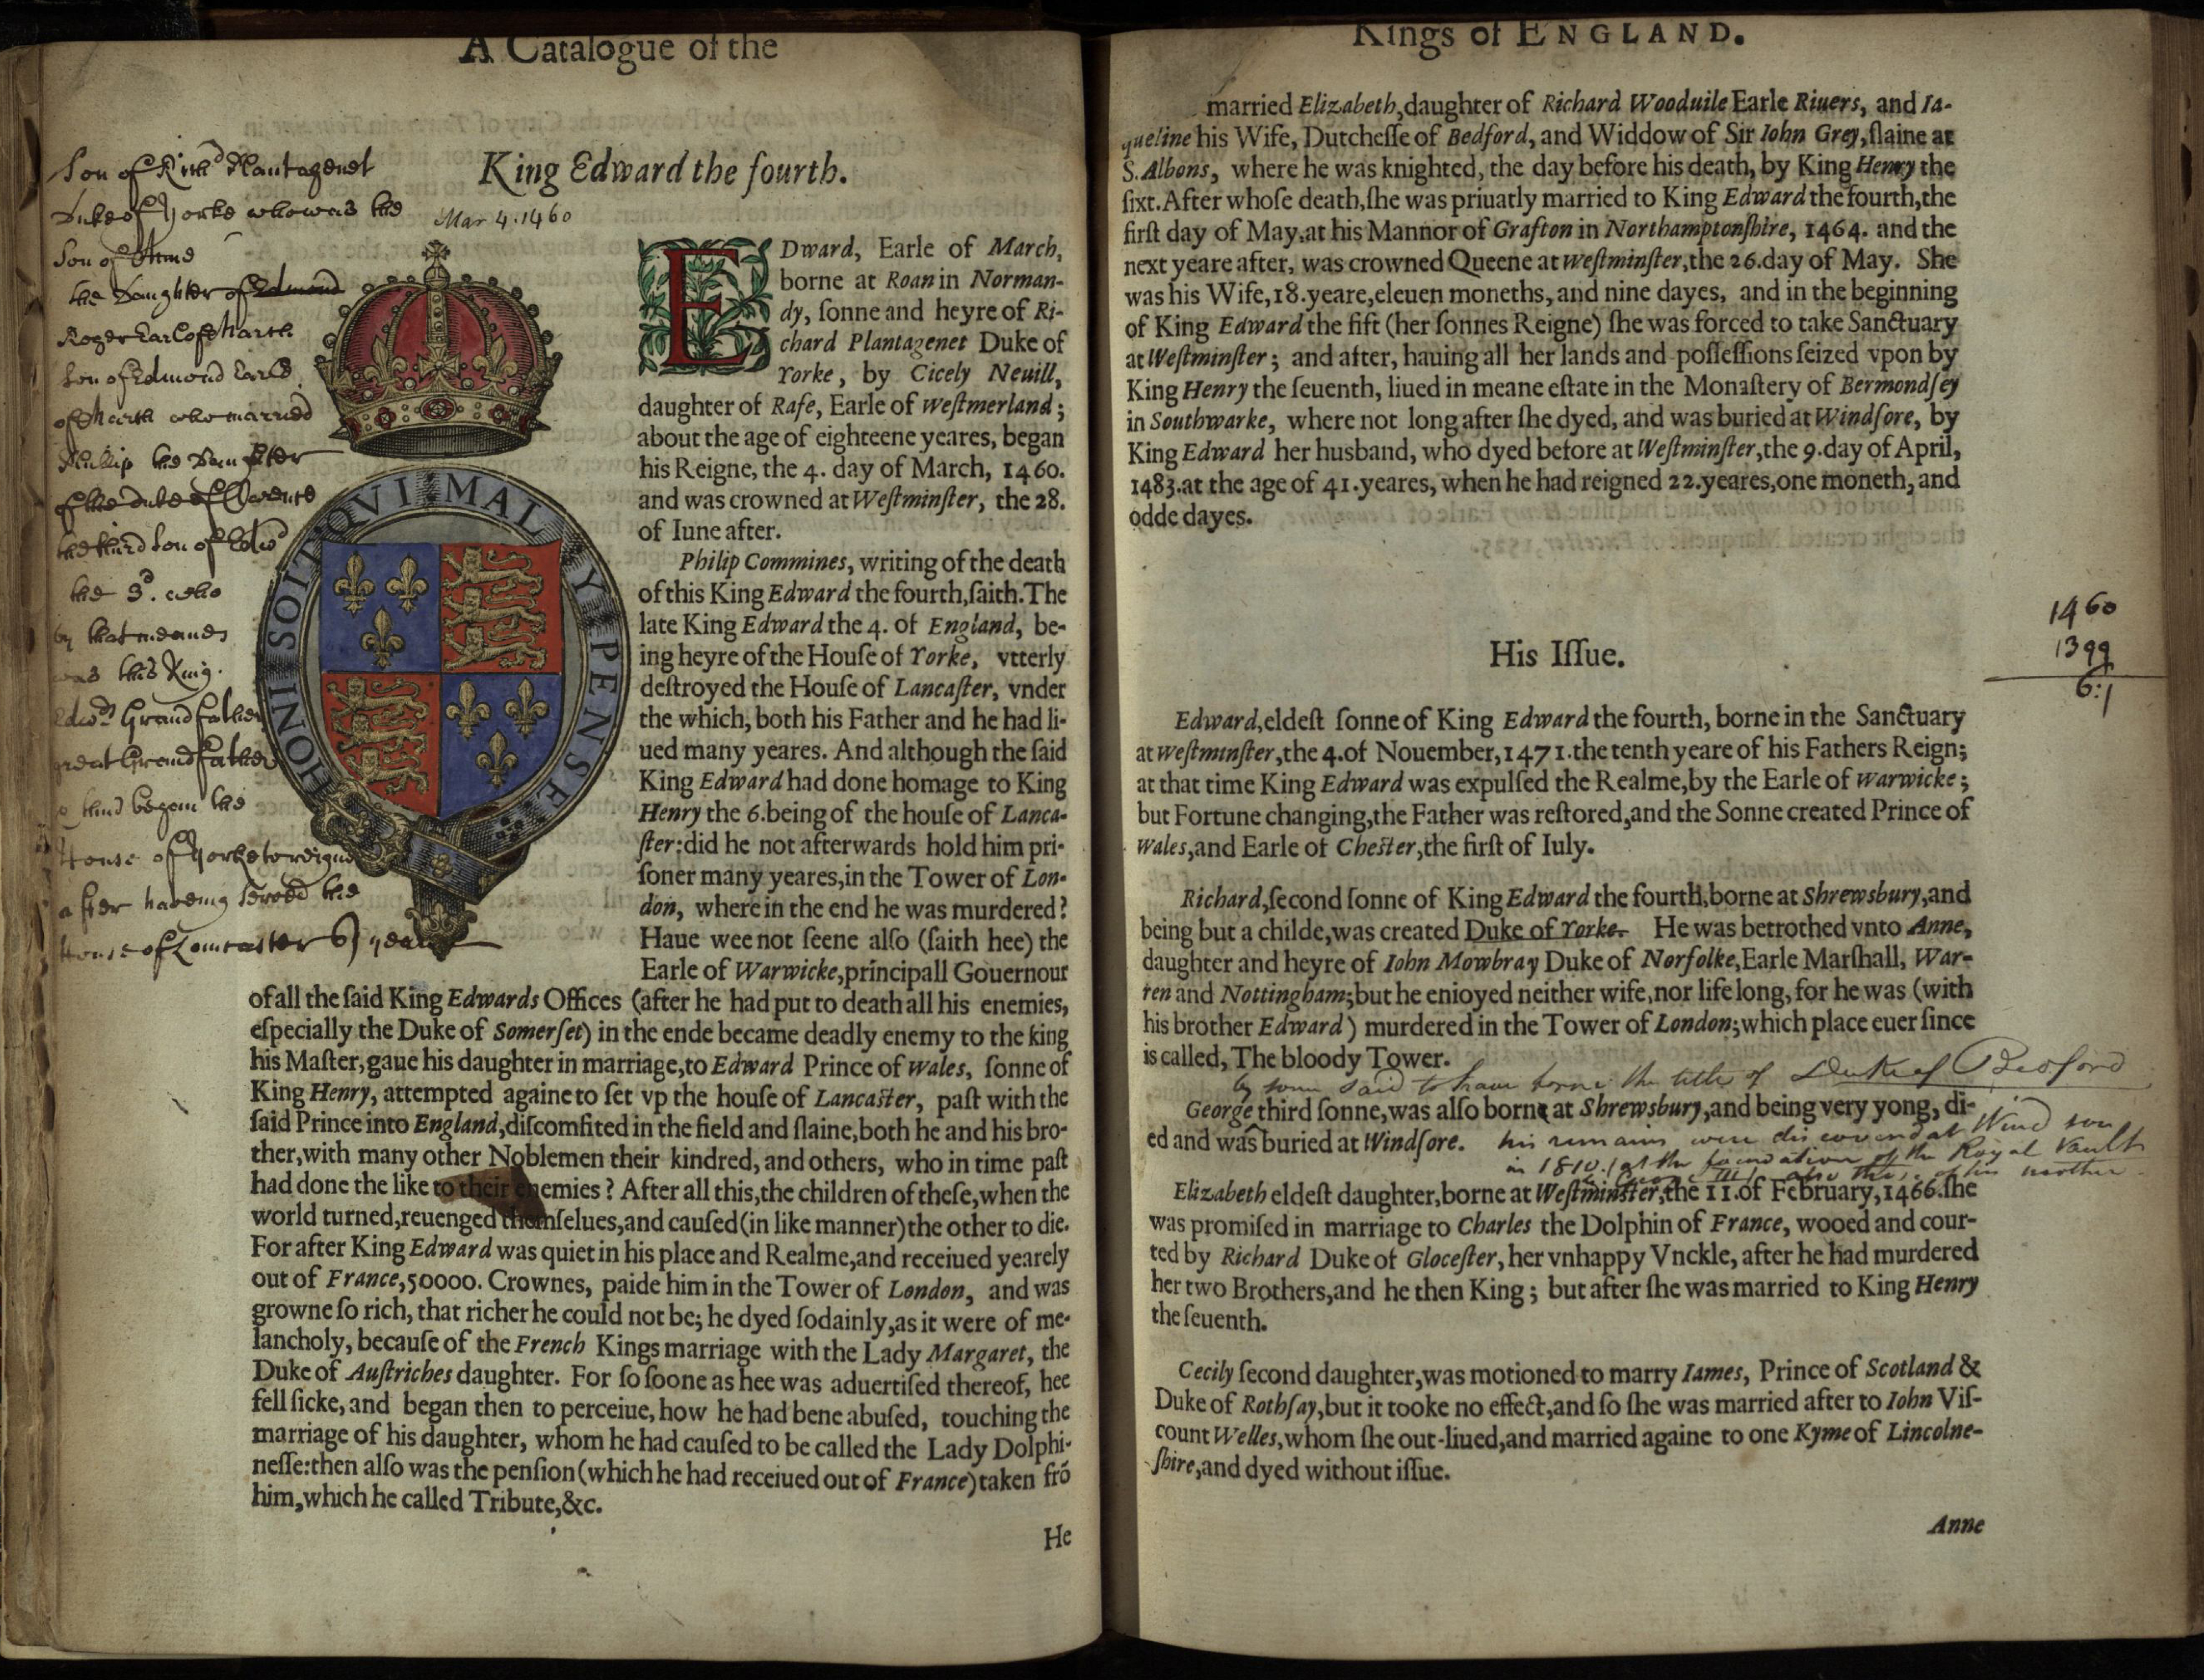 A Catalogue of the
King Edward the fourth.
Mar 4. 1460
Son of Rich^d Plantagenet
Duke of Yorke who was the
Son of Anne
the Daughter of Edmond
Roger Earl of March
Son of Edmond Earle
of March who married
Phillip the Daughter
of the Duke of Clarence
the third Son of Edw^d
the 3^d. who
by that meanes
was this King
Edw^ds Grandfather
great Grandfather
begun the
House of Yorke to reigne
after haveing served the
House of Lancaster 61 years
HONI SOIT QVI MAL Y PENSE
EDward, Earle of March,
borne at Roan in Norman-
dy, ſonne and heyre of Ri-
chard Plantagenet Duke of
Yorke, by Cicely Neuill,
daughter of Rafe, Earle of Weſtmerland;
about the age of eighteene yeares, began
his Reigne, the 4. day of March, 1460.
and was crowned at Weſtminſter, the 28.
of Iune after.
Philip Commines, writing of the death
of this King Edward the fourth, ſaith. The
late King Edward the 4. of England, be-
ing heyre of the Houſe of Yorke, vtterly
deſtroyed the Houſe of Lancaſter, vnder
the which, both his Father and he had li-
ued many yeares. And although the ſaid
King Edward had done homage to King
Henry the 6. being of the houſe of Lanca-
ſter: did he not afterwards hold him pri-
ſoner many yeares, in the Tower of Lon-
don, where in the end he was murdered?
Haue wee not ſeene alſo (ſaith hee) the
Earle of Warwicke, principall Gouernour
of all the ſaid King Edwards Offices (after he had put to death all his enemies,
eſpecially the Duke of Somerſet) in the ende became deadly enemy to the king
his Maſter, gaue his daughter in marriage, to Edward Prince of Wales, ſonne of
King Henry, attempted againe to ſet vp the houſe of Lancaſter, paſt with the
ſaid Prince into England, diſcomfited in the field and ſlaine, both he and his bro-
ther, with many other Noblemen their kindred, and others, who in time paſt
had done the like to their enemies? After all this, the children of theſe, when the
world turned, reuenged themſelues, and cauſed (in like manner) the other to die.
For after King Edward was quiet in his place and Realme, and receiued yearely
out of France, 50000. Crownes, paide him in the Tower of London, and was
growne ſo rich, that richer he could not be; he dyed ſodainly, as it were of me-
lancholy, becauſe of the French Kings marriage with the Lady Margaret, the
Duke of Auſtriches daughter. For ſo ſoone as hee was aduertiſed thereof, hee
fell ſicke, and began then to perceiue, how he had bene abuſed, touching the
marriage of his daughter, whom he had cauſed to be called the Lady Dolphi-
neſſe: then alſo was the penſion (which he had receiued out of France) taken frō
him, which he called Tribute, &c.
He
Kings of ENGLAND.
married Elizabeth, daughter of Richard Wooduile Earle Riuers, and Ia-
queline his Wife, Dutcheſſe of Bedford, and Widdow of Sir Iohn Grey, ſlaine at
S. Albons, where he was knighted, the day before his death, by King Henry the
ſixt. After whoſe death, ſhe was priuatly married to King Edward the fourth, the
firſt day of May, at his Mannor of Grafton in Northamptonſhire, 1464. and the
next yeare after, was crowned Queene at Weſtminſter, the 26. day of May. She
was his Wife, 18. yeare, eleuen moneths, and nine dayes, and in the beginning
of King Edward the fift (her ſonnes Reigne) ſhe was forced to take Sanctuary
at Weſtminſter; and after, hauing all her lands and poſſeſſions ſeized vpon by
King Henry the ſeuenth, liued in meane eſtate in the Monaſtery of Bermondſey
in Southwarke, where not long after ſhe dyed, and was buried at Windſore, by
King Edward her husband, who dyed before at Weſtminſter, the 9. day of April,
1483. at the age of 41. yeares, when he had reigned 22. yeares, one moneth, and
odde dayes.
1460
1399
6:1
His Iſſue.
Edward, eldeſt ſonne of King Edward the fourth, borne in the Sanctuary
at Weſtminſter, the 4. of Nouember, 1471. the tenth yeare of his Fathers Reign;
at that time King Edward was expulſed the Realme, by the Earle of Warwicke;
but Fortune changing, the Father was reſtored, and the Sonne created Prince of
Wales, and Earle of Cheſter, the firſt of Iuly.
Richard, ſecond ſonne of King Edward the fourth, borne at Shrewsbury, and
being but a childe, was created Duke of Yorke. He was betrothed vnto Anne,
daughter and heyre of Iohn Mowbray Duke of Norfolke, Earle Marſhall, War-
ren and Nottingham; but he enioyed neither wife, nor life long, for he was (with
his brother Edward) murdered in the Tower of London; which place euer ſince
is called, The bloody Tower.
by some said to have borne the title of Duke of Bedford
George third ſonne, was alſo borne at Shrewsbury, and being very yong, di-
ed and was buried at Windſore. his remains were discovered at Windsor
in 1810. (at the foundation of the Royal Vault
George III) also those of his mother
Elizabeth eldeſt daughter, borne at Weſtminſter, the 11. of February, 1466. ſhe
was promiſed in marriage to Charles the Dolphin of France, wooed and cour-
ted by Richard Duke of Gloceſter, her vnhappy Vnckle, after he had murdered
her two Brothers, and he then King; but after ſhe was married to King Henry
the ſeuenth.
Cecily ſecond daughter, was motioned to marry Iames, Prince of Scotland &
Duke of Rothſay, but it tooke no effect, and ſo ſhe was married after to Iohn Viſ-
count Welles, whom ſhe out-liued, and married againe to one Kyme of Lincolne-
ſhire, and dyed without iſſue.
Anne